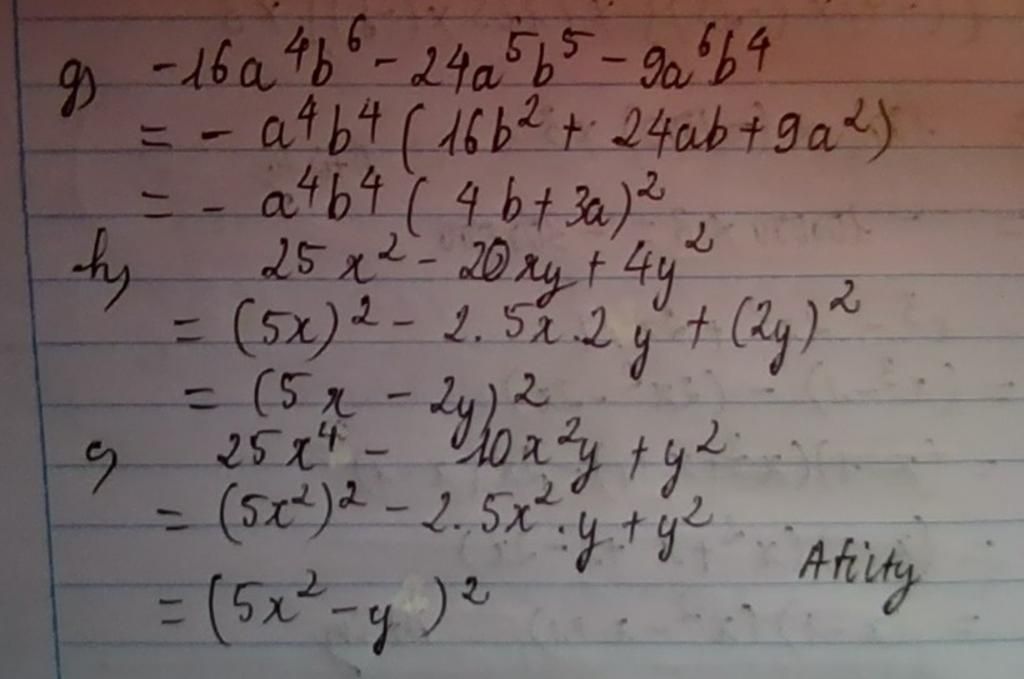 g) -16a⁴b⁶ - 24a⁵b⁵ - 9a⁶b⁴
= - a⁴b⁴ (16b² + 24ab + 9a²)
= - a⁴b⁴ (4b + 3a)²
h) 25x² - 20xy + 4y²
= (5x)² - 2.5x.2y + (2y)²
= (5x - 2y)²
25x⁴ - 10x²y + y²
= (5x²)² - 2.5x².y + y²
= (5x² - y)²